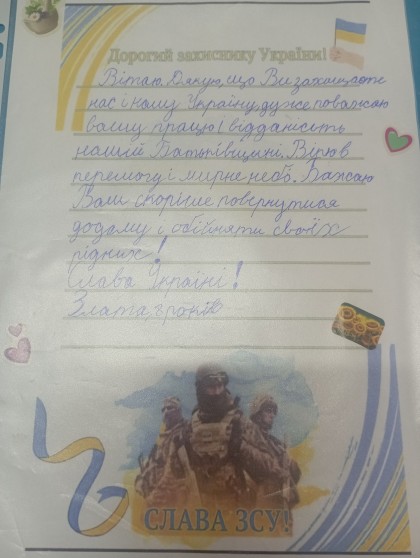 Дорогий захиснику України!
Вітаю. Дякую, що Ви захищаєте
нас і нашу Україну, дуже поважаю
вашу працю і відданість
нашій Батьківщині. Вірю в
перемогу і мирне небо. Бажаю
Вам скоріше повернутися
додому і обійняти своїх
рідних!
Слава Україні!
Злата, 9 років
СЛАВА ЗСУ!